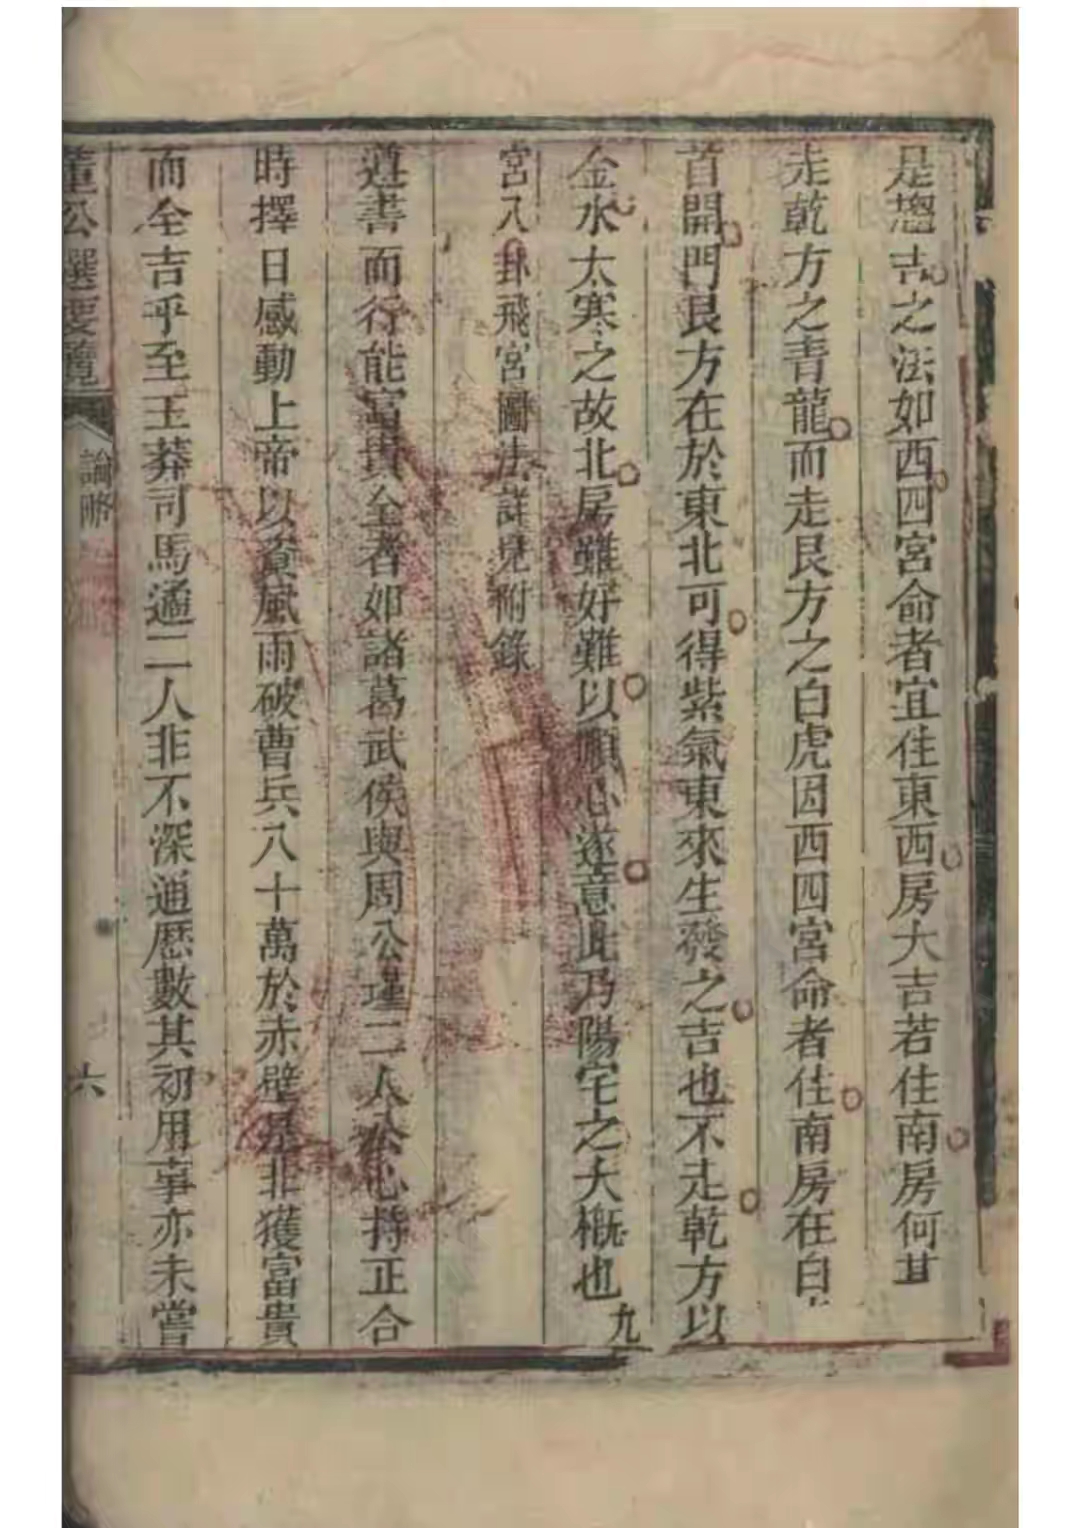 是趨吉之法如西四宮命者宜住東西房大吉若住南房何
走乾方之青龍而走艮方之白虎因西四宮命者住南房在白
首開門艮方在於東北可得紫氣東來生發之吉也不走乾方以
金水太寒之故北房雖好難以順心遂意此乃陽宅之大概也九
宮八卦飛宮圖法詳見附錄
遵書而行能富貴全者如諸葛武侯與周公瑾二人公心持正合
時擇日感動上帝以資風雨破曹兵八十萬於赤壁是非獲富貴
而全吉乎至王莽司馬遹二人非不深通歷數其初用事亦未嘗
董公選要覽
論
六